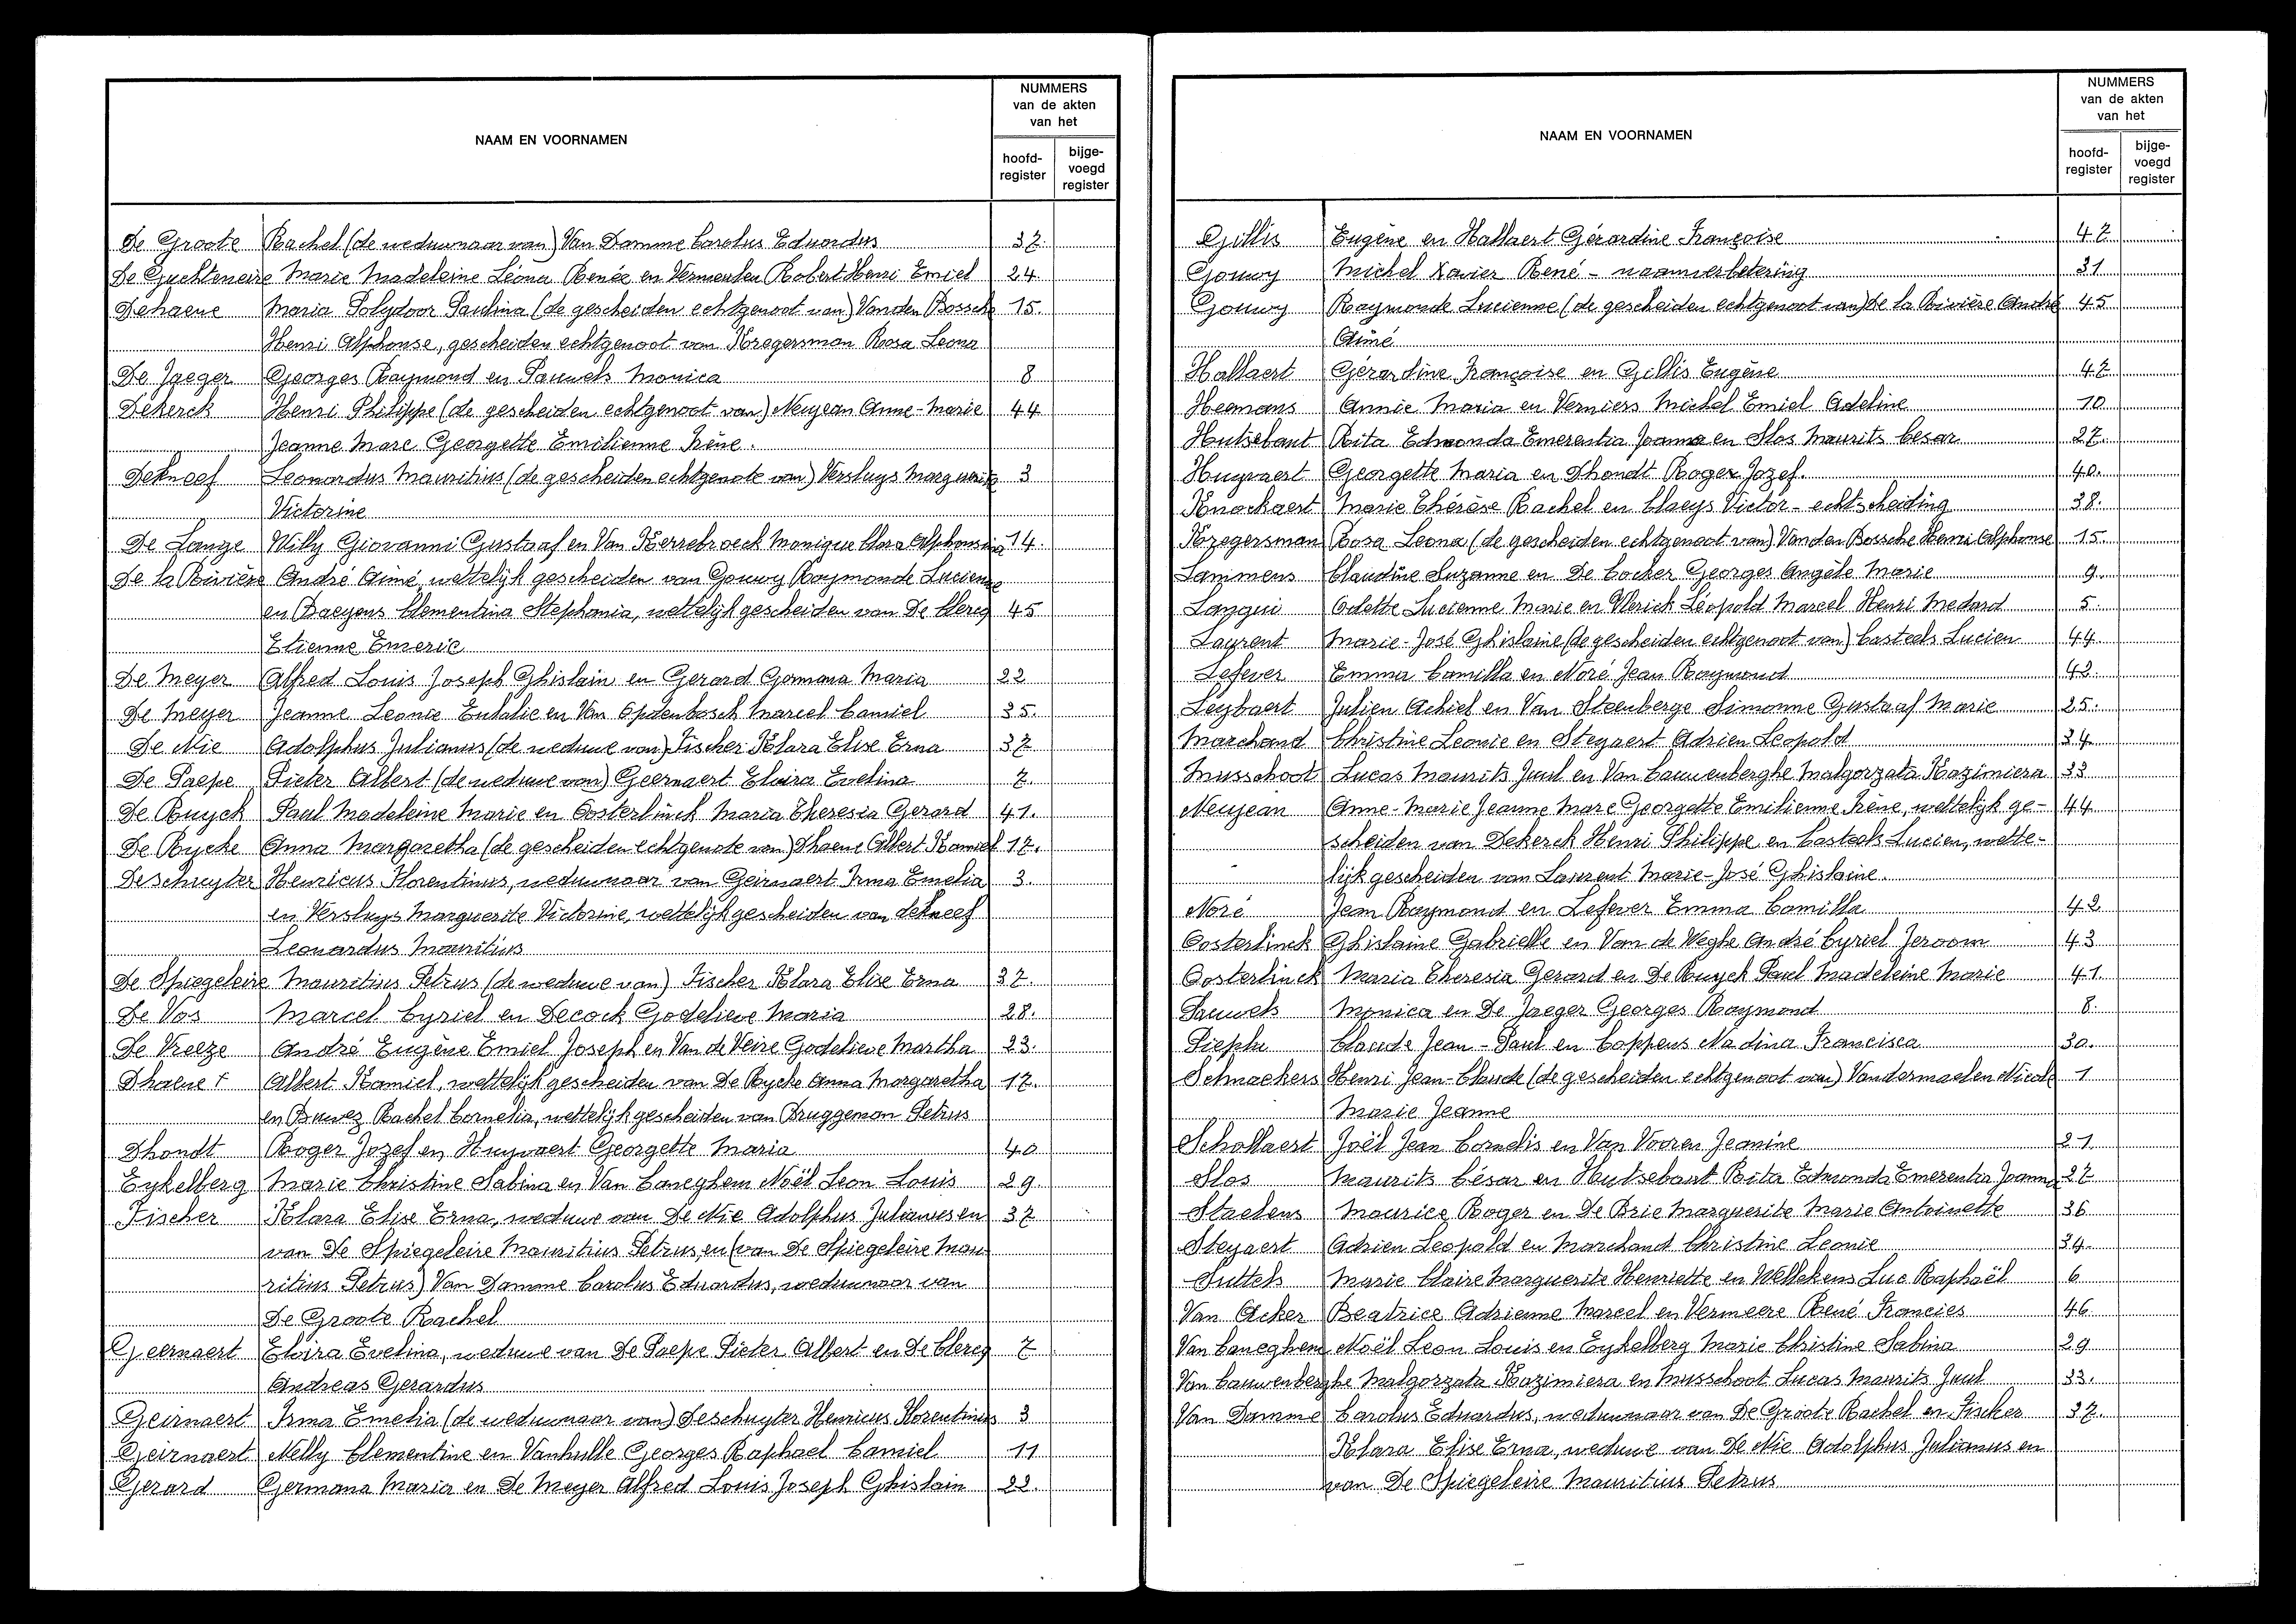 NAAM EN VOORNAMEN
NUMMERS
van de akten
van het
hoofd-
register
bijge-
voegd
register
De Groote Rachel (de weduwnaar van) Van Damme Carolus Eduardus 37.
De Guchteneire Marie Madeleine Léona Renée en Vermeulen Robert Henri Emiel 24
Dehaene Maria Polydoor Paulina (de gescheiden echtgenoot van) Vanden Bossche 15.
Henri Alphonse, gescheiden echtgenoot van Kregersman Rosa Leona
De Jaeger Georges Raymond en Pauwels Monica 8
Dekerck Henri Philippe (de gescheiden echtgenoot van) Neujean Anne-Marie 44
Jeanne Marc Georgette Emilienne Irène.
Dekneef Leonardus Mauritius (de gescheiden echtgenote van) Versluys Marguerite 3
Victorine
De Lange Willy Giovanni Gustaaf en Van Kerrebroeck Monique Clara Alphonsina 14.
De la Rivière André Aimé, wettelijk gescheiden van Gouwy Raymonde Lucienne
en Baeyens Clementina Stephania, wettelijk gescheiden van De Clercq 45
Etienne Emeric
De Meyer Alfred Louis Joseph Ghislain en Gerard Germana Maria 22
De Meyer Jeanne Leonie Eulalie en Van Opdenbosch Marcel Camiel 35.
De Nie Adolphus Julianus (de weduwe van) Fischer Klara Elise Erna 37
De Paepe Pieter Albert (de weduwe van) Geernaert Elvira Evelina 7.
De Ruyck Paul Madeleine Marie en Oosterlinck Maria Theresia Gerard 41.
De Rycke Anna Margaretha (de gescheiden echtgenote van) Dhaene Albert Kamiel 17.
Deschuyter Henricus Florentinus, weduwnaar van Geirnaert Irma Emelia 3.
en Versluys Marguerite Victorine, wettelijk gescheiden van Dekneef
Leonardus Mauritius
De Spiegeleire Mauritius Petrus (de weduwe van) Fischer Klara Elise Erna 37.
De Vos Marcel Cyriel en Decock Godelieve Maria 28.
De Vreeze André Eugène Emiel Joseph en Van de Veire Godelieve Martha 23.
Dhaene + Albert Kamiel, wettelijk gescheiden van De Rycke Anna Margaretha 17.
en Buwez Rachel Cornelia, wettelijk gescheiden van Bruggeman Petrus
Dhondt Roger Jozef en Huyvaert Georgette Maria 40
Eykelberg Marie Christine Sabina en Van Caneghem Noël Leon Louis 29
Fischer Klara Elise Erna, weduwe van De Nie Adolphus Julianus en 37
van De Spiegeleire Mauritius Petrus, en (van De Spiegeleire Mau
ritius Petrus) Van Damme Carolus Eduardus, weduwnaar van
De Groote Rachel
Geernaert Elvira Evelina, weduwe van De Paepe Pieter Albert en De Clercq 7
Andreas Gerardus
Geirnaert Irma Emelia (de weduwnaar van) Deschuyter Henricus Florentinus 3
Geirnaert Nelly Clementine en Vanhulle Georges Raphael Camiel 11
Gerard Germana Maria en De Meyer Alfred Louis Joseph Ghislain 22.
NAAM EN VOORNAMEN
NUMMERS
van de akten
van het
hoofd-
register
bijge-
voegd
register
Gillis Eugène en Hallaert Gérardine Françoise 47
Gouwy Michel Xavier René - naamverbetering 31
Gouwy Raymonde Lucienne (de gescheiden echtgenoot van) De la Rivière André 45
Aimé
Hallaert Gérardine Françoise en Gillis Eugène 47
Heemans Annie Maria en Verniers Michel Emiel Adeline 10
Hutsebaut Rita Edmonda Emerentia Joanna en Slos Maurits Cesar 27.
Huyvaert Georgette Maria en Dhondt Roger Jozef. 40.
Knockaert Marie Thérèse Rachel en Claeys Victor - echtscheiding 38.
Kregersman Rosa Leona (de gescheiden echtgenoot van) Vanden Bossche Henri Alphonse 15.
Lammens Claudine Suzanne en De Cocker Georges Angèle Marie 9.
Langui Odette Lucienne Marie en Vlerick Léopold Marcel Henri Medard 5.
Laurent Marie-José Ghislaine (de gescheiden echtgenoot van) Casteels Lucien 44
Lefever Emma Camilla en Noré Jean Raymond 42.
Leybaert Julien Achiel en Van Steenberge Simonne Gustaaf Marie 25.
Marchand Christine Leonie en Steyaert Adrien Leopold 34
Musschoot Lucas Maurits Juul en Van Cauwenberghe Malgorzata Kazimiera 33
Neujean Anne-Marie Jeanne Marc Georgette Emilienne Irène, wettelijk ge- 44
scheiden van Dekerck Henri Philippe en Casteels Lucien, wette-
lijk gescheiden van Laurent Marie-José Ghislaine.
Noré Jean Raymond en Lefever Emma Camilla 42
Oosterlinck Ghislaine Gabrielle en Van de Weghe André Cyriel Jeroom 43
Oosterlinck Maria Theresia Gerard en De Ruyck Paul Madeleine Marie 41.
Pauwels Monica en De Jaeger Georges Raymond 8.
Pieplu Claude Jean-Paul en Coppens Nadina Francisca 30.
Schnackers Henri Jean-Claude (de gescheiden echtgenoot van) Vandermaelen Nicole 1
Marie Jeanne
Schollaert Joël Jean Cornelis en Van Vooren Jeanine 21.
Slos Maurits César en Hutsebaut Rita Edmonda Emerentia Joanna 27
Staelens Maurice Roger en De Brie Marguerite Marie Antoinette 36
Steyaert Adrien Leopold en Marchand Christine Leonie 34.
Suttels Marie Claire Marguerite Henriette en Wellekens Luc Raphaël 6
Van Acker Beatrice Adrienne Marcel en Vermeere René Francies 46
Van Caneghem Noël Leon Louis en Eykelberg Marie Christine Sabina 29
Van Cauwenberghe Malgorzata Kazimiera en Musschoot Lucas Maurits Juul 33.
Van Damme Carolus Eduardus, weduwnaar van De Groote Rachel en Fischer 37.
Klara Elise Erna, weduwe van De Nie Adolphus Julianus en
van De Spiegeleire Mauritius Petrus